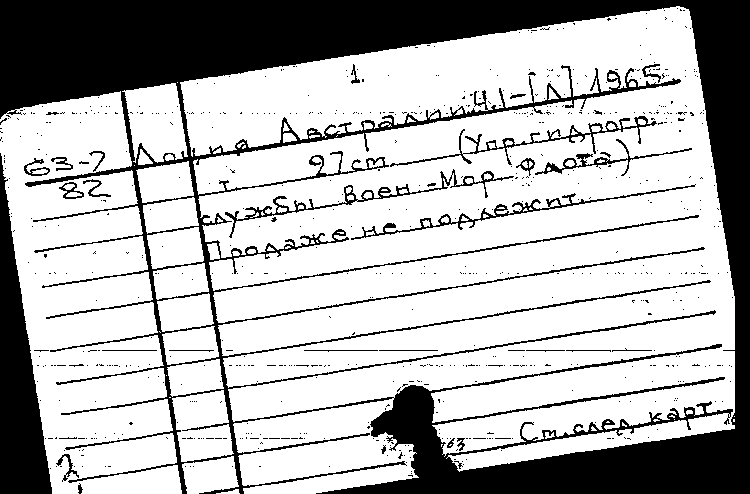 1.
63-7
82
Лоция Австралии. Ч.1-[Л], 1965.
т. 27cm. (Упр. гидрогр.
службы Воен-Мор. Флота)
Продаже не подлежит.
Ст. след. карт.
2,
63